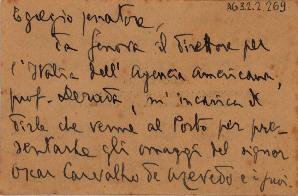 AG3.2.2.269
Egregio senatore,
Da Genova il Direttore per
l'Italia dell'Agenzia Americana,
prof. Derada, m'incarica di
dirle che venne al Porto per pre-
sentarle gli omaggi del signor
Oscar Carvalho de Azevedo e i suoi